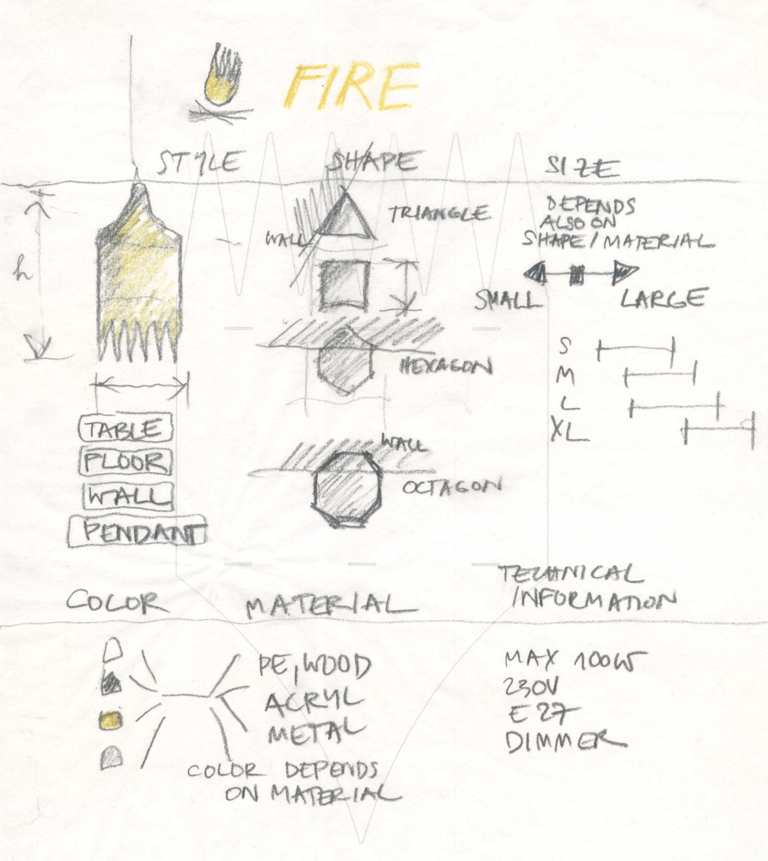 FIRE
STYLE
SHAPE
SIZE
h
TABLE
FLOOR
WALL
PENDANT
WALL
TRIANGLE
HEXAGON
WALL
OCTAGON
DEPENDS
ALSO ON
SHAPE/MATERIAL
SMALL LARGE
S
M
L
XL
COLOR
MATERIAL
TECHNICAL
INFORMATION
PE, WOOD
ACRYL
METAL
COLOR DEPENDS
ON MATERIAL
MAX 100W
230V
E27
DIMMER